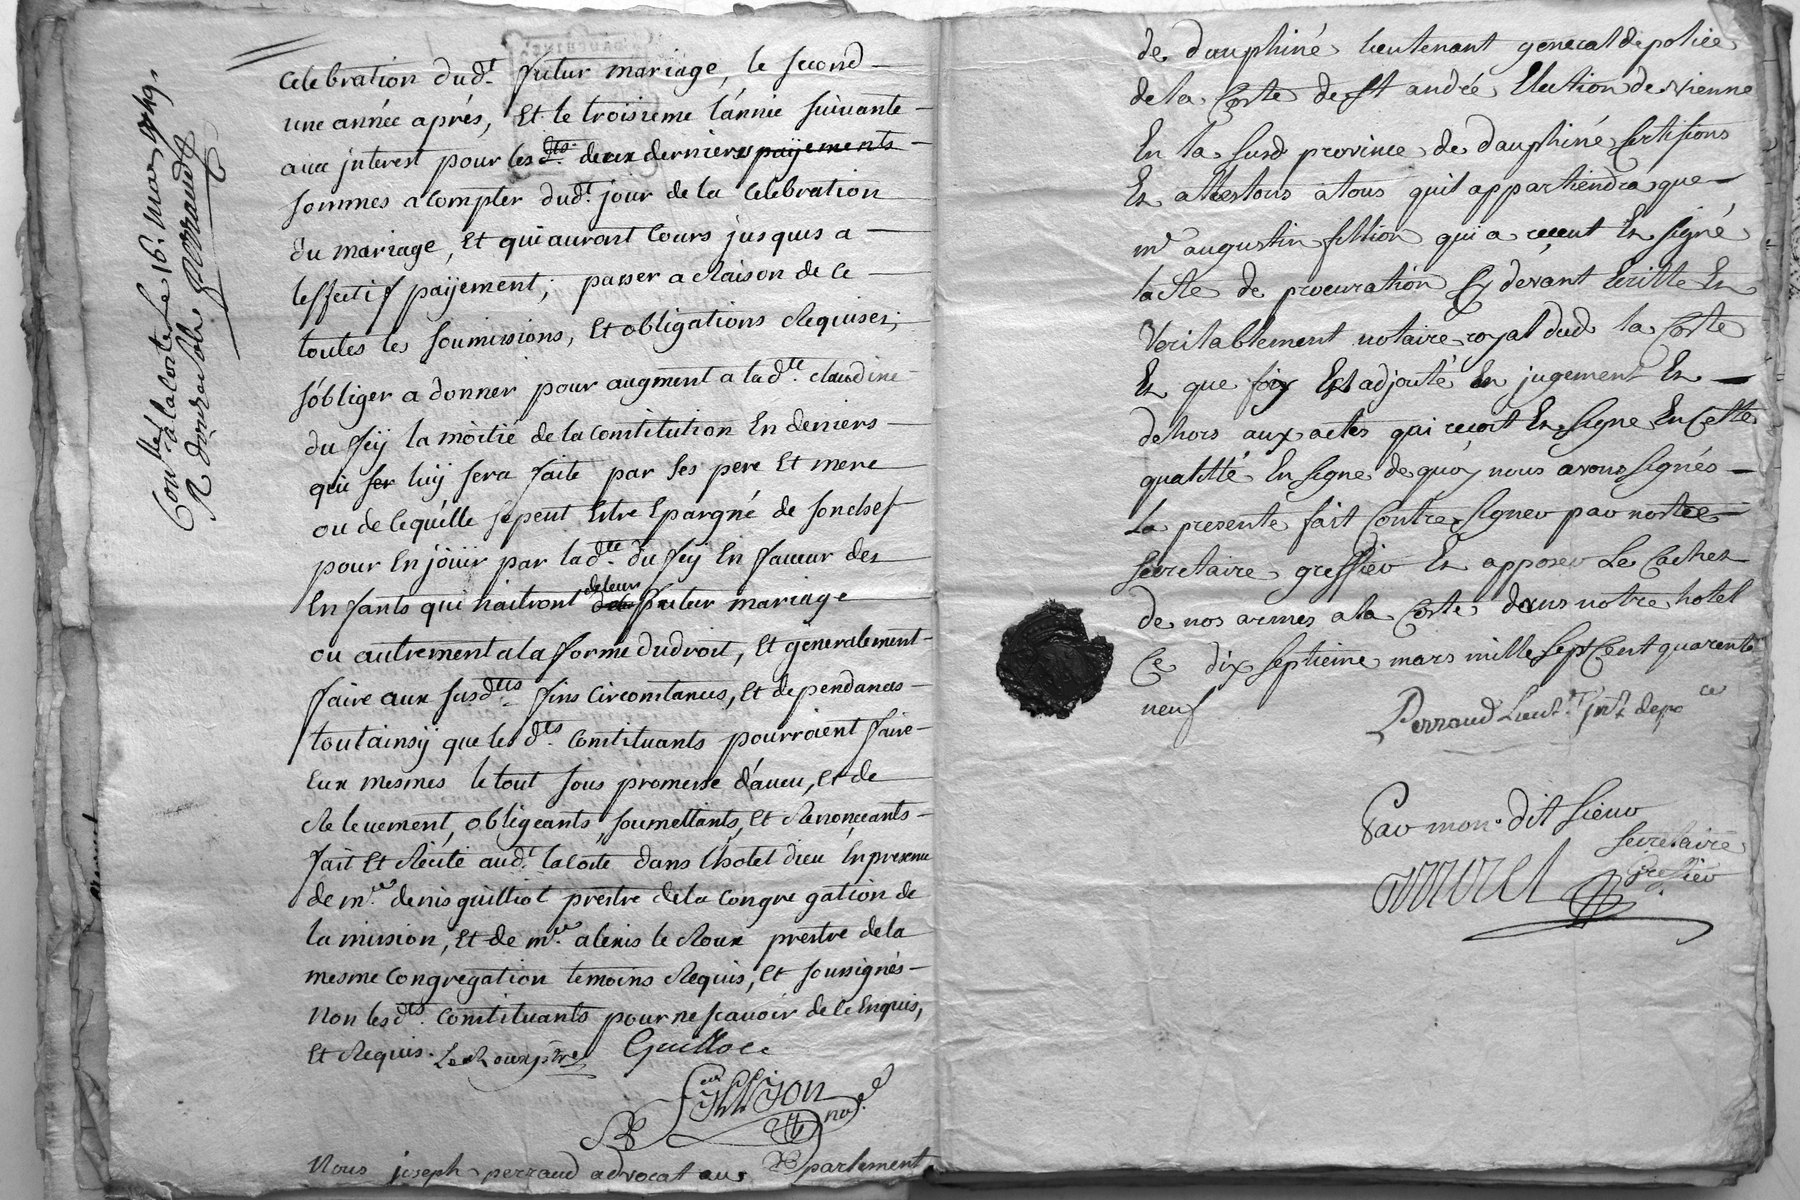 Conlle a la Coste Le 16. mars 1749.
R douze sols Perraud
celebration dudt. futur mariage, le second
une année aprés, Et le troisieme l'année suivante
aux jnterest pour les dts. deux derniers payements
sommes a compter dudt jour de la celebration
du mariage, Et qui auront cours jusques a
leffectif payement; passer a Raison de ce
toutes les soumissions, Et obligations Requises;
sobliger a donner pour augment a ladte. claudine
du fey la moitié de la constitution En deniers
qui ser luy sera faite par ses pere Et mere
ou de lequelle se peut Estre Epargné de son chef
pour En joüir par ladte. du fey En faveur des
Enfants qui naitront de leur futur mariage
ou autrement a la forme du droit, Et generalement
faire aux susdtes fins circonstances, Et dependances
tout ainsy que lesdts. constituants pourroient faire
Eux mesmes le tout sous promesse d'aveu, Et de
Relevement, obligeants, soumettants, Et Renonceants
fait Et Récité audt. lacoste dans lhotel dieu En presence
de mre. denis guilliot prestre de la congregation de
la mission, Et de mre. alexis le Roux prestre de la
mesme congregation temoins Requis, Et soussignés
Non lesdts. constituants pour ne scavoir de ce Enquis,
Et Requis. Le Roux ptre Guilloc
fillion nore.
Nous joseph perraud advocat au parlement
de dauphiné lieutenant general de police
de la Coste de St andré Election de Vienne
En la susd province de dauphiné Certifions
Et attestons a tous quil appartiendra que
mr augustin fillion qui a receut Et signé
lacte de procuration Cy devant Ecritte Est
Veritablement notaire royal dud la Coste
Et que foy Est adjouté En jugement Et
dehors aux actes qui recoit Et signe En Cette
qualitté En signe de quoy nous avons signés
La presente fait Contre signer par nostre
secretaire greffier Et apposer Le Cachet
de nos armes a la Coste dans notre hotel
Ce dix septieme mars mille sept Cent quarente
neuf
Perraud Lieut. gnl depoce
Par mon. dit sieur
secretaire
greffier